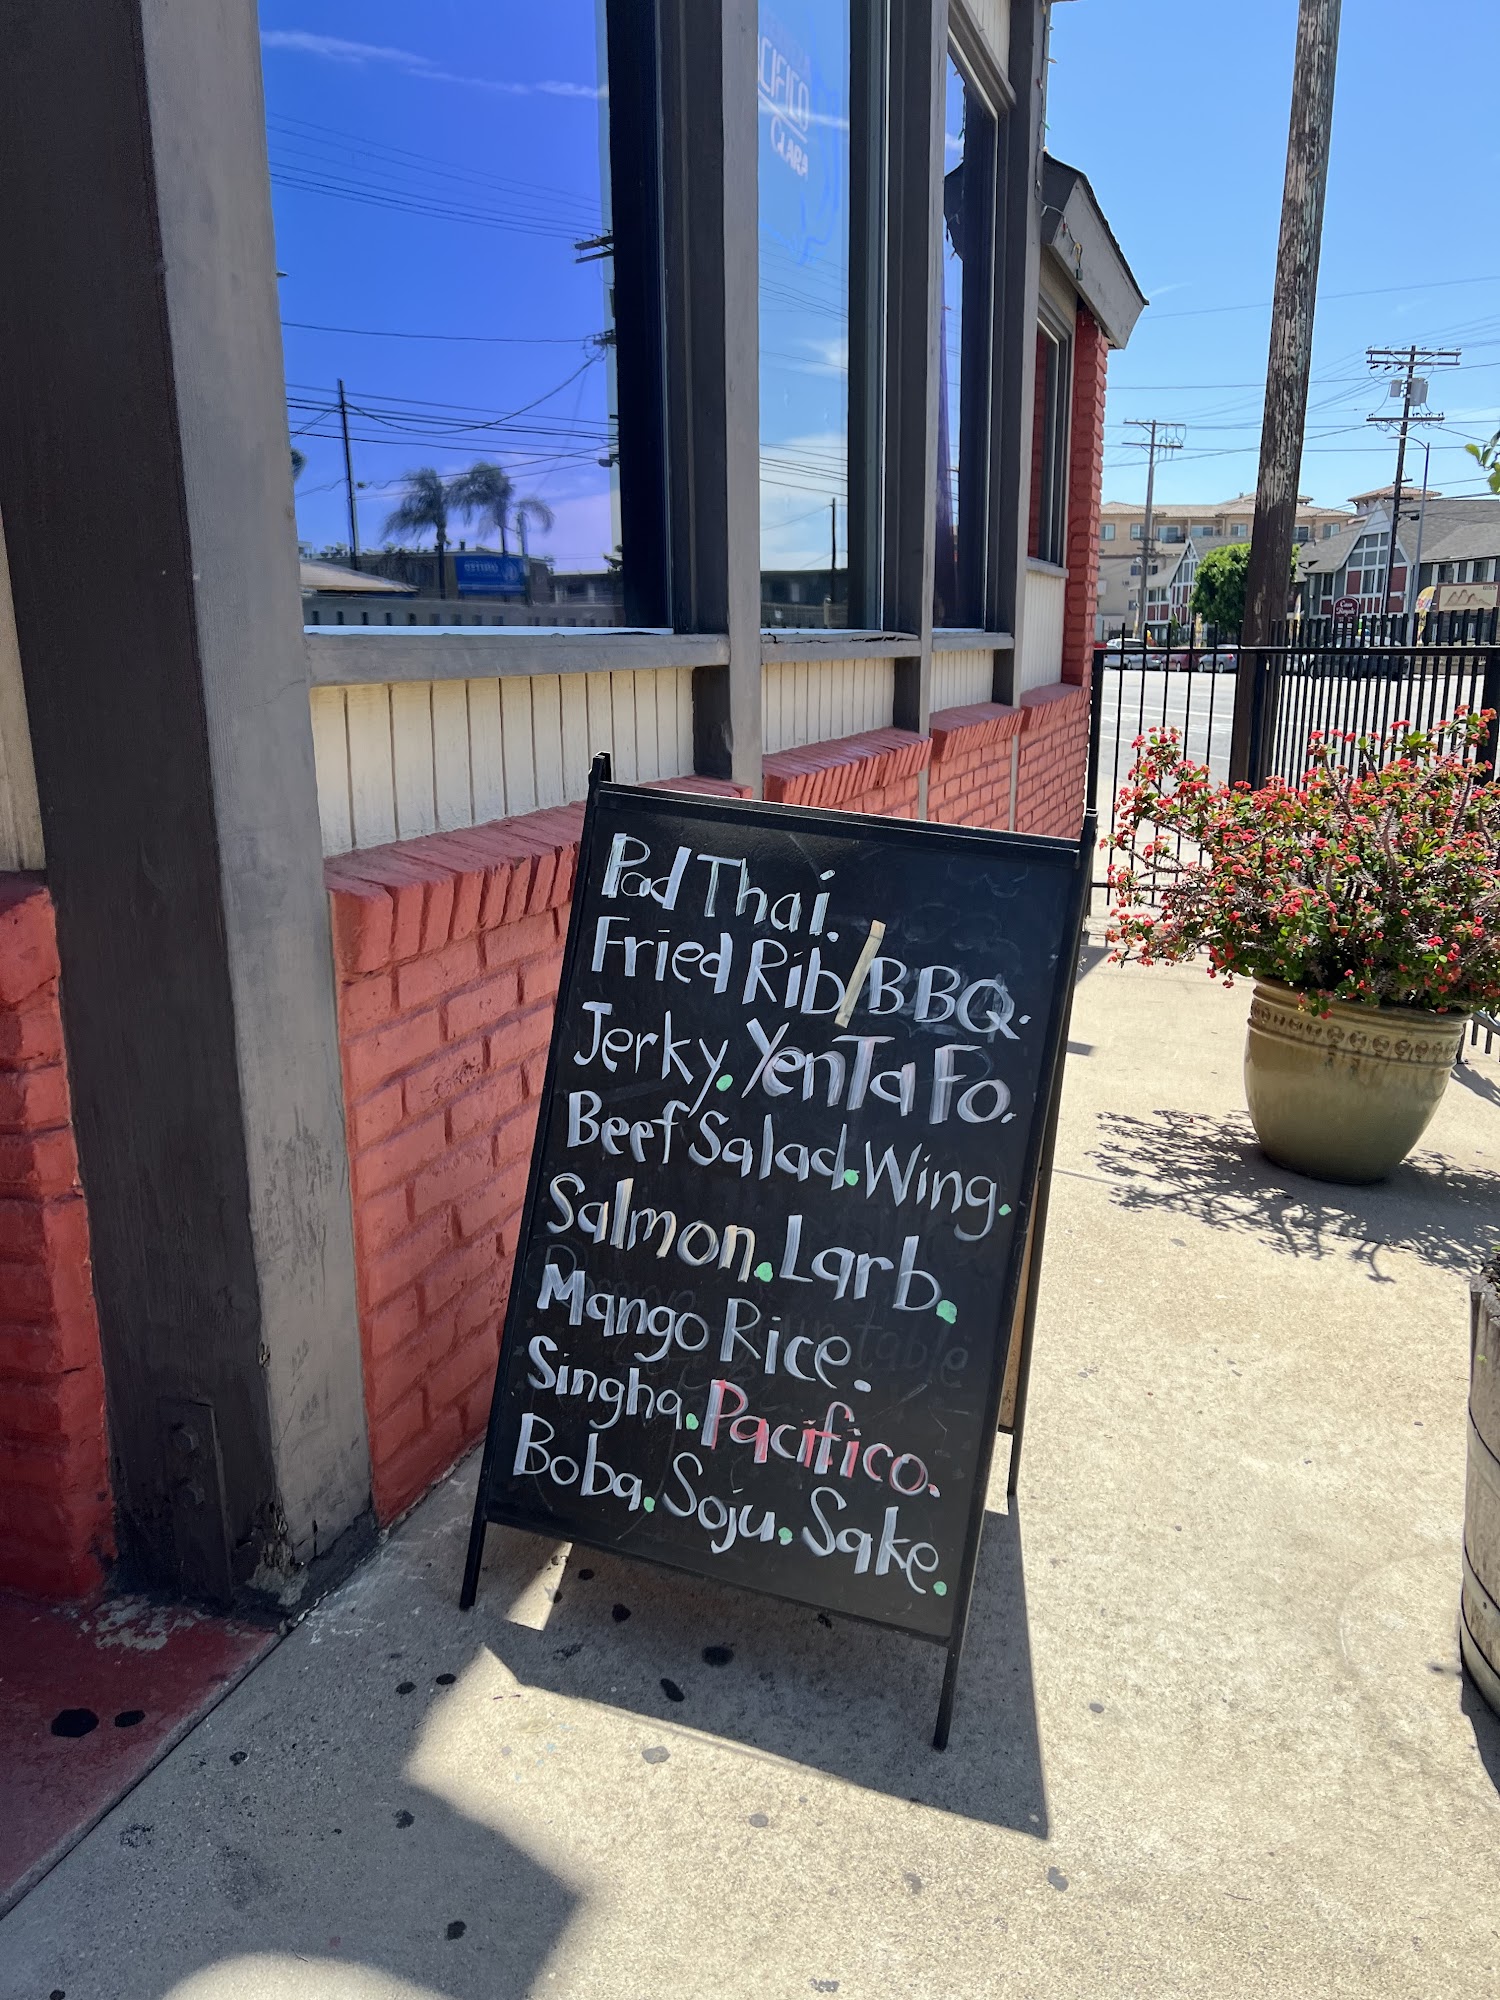 CIFICO
CLARA
UNITED
Pad Thai.
Fried Rib/BBQ.
Jerky. Yen Ta Fo.
Beef Salad. Wing.
Salmon. Larb.
Mango Rice.
Singha. Pacifico.
Boba. Soju. Sake.